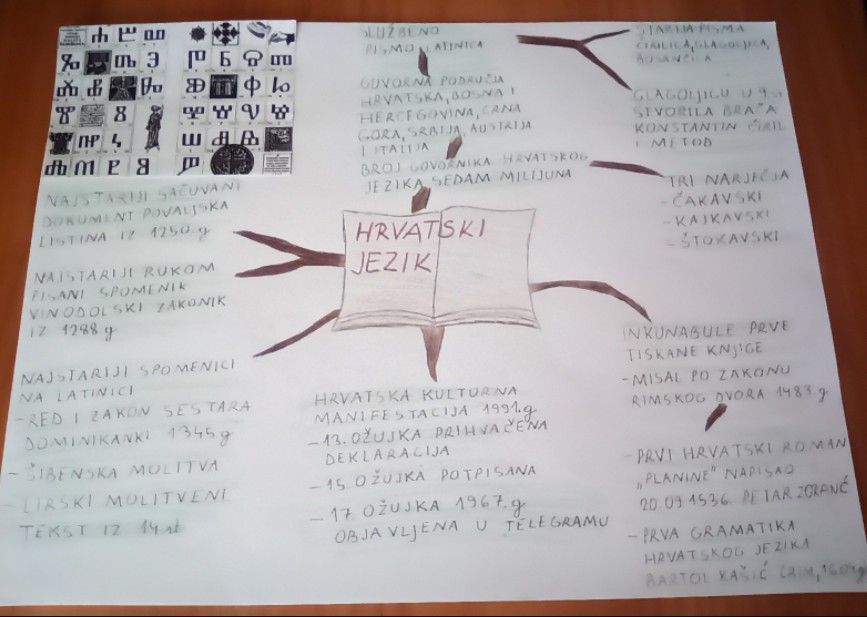 HRVATSKI
JEZIK
SLUŽBENO
PISMO LATINICA
GOVORNA PODRUČJA
HRVATSKA, BOSNA I
HERCEGOVINA, CRNA
GORA, SRBIJA, AUSTRIJA
I ITALIJA
BROJ GOVORNIKA HRVATSKOG
JEZIKA SEDAM MILIJUNA
STARIJA PISMA
ĆIRILICA, GLAGOLJICA,
BOSANČICA
GLAGOLJICU U 9.st
STVORILA BRAĆA
KONSTANTIN ĆIRIL
I METOD
TRI NARJEČJA
- ČAKAVSKI
- KAJKAVSKI
- ŠTOKAVSKI
INKUNABULE PRVE
TISKANE KNJIGE
- MISAL PO ZAKONU
RIMSKOG DVORA 1483 g
- PRVI HRVATSKI ROMAN
„PLANINE" NAPISAO
20.09 1536. PETAR ZORANIĆ
- PRVA GRAMATIKA
HRVATSKOG JEZIKA
BARTOL KAŠIĆ (RIM, 1604.g)
HRVATSKA KULTURNA
MANIFESTACIJA 1991.g
- 13. OŽUJKA PRIHVAČENA
DEKLARACIJA
- 15. OŽUJKA POTPISANA
- 17 OŽUJKA 1967.g
OBJAVLJENA U TELEGRAMU
NAJSTARIJI SAČUVANI
DOKUMENT POVALJSKA
LISTINA IZ 1250.g
NAJSTARIJI RUKOM
PISANI SPOMENIK
VINODOLSKI ZAKONIK
IZ 1288 g
NAJSTARIJI SPOMENICI
NA LATINICI
- RED I ZAKON SESTARA
DOMINIKANKI 1345.g
- ŠIBENSKA MOLITVA
- LIRSKI MOLITVENI
TEKST IZ 14.st